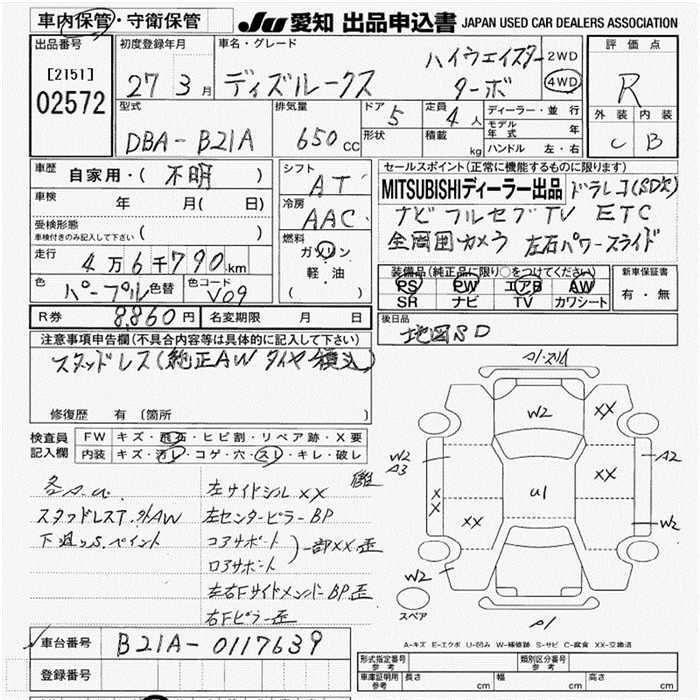 車内保管・守衛保管
JU 愛知 出品申込書 JAPAN USED CAR DEALERS ASSOCIATION
出品番号
[2151]
02572
初度登録年月
27 3月
車名・グレード
ハイウェイスター
ディズルークス ターボ
2WD
4WD
評価点
R
外装 内装
C B
型式
DBA-B21A
排気量
650cc
ドア 5
形状
定員 4人
積載 kg
ディーラー・並行
モデル年式 年
ハンドル 左・右
車歴
自家用・( 不明 )
車検 年 月( 日)
受検形態
車検付きのみ記入して下さい ( )
走行
4万6千790km
色 パープル 色替 色コード V09
シフト
AT
冷房
AAC
燃料
ガソリン
軽・油
( )
セールスポイント(正常に機能するものに限ります)
MITSUBISHIディーラー出品 ドラレコ(SD欠)
ナビ フルセグTV ETC
全周囲カメラ 左右パワースライド
装備品(純正品に限り○をつけてください)
PS PW エアB AW
SR ナビ TV カワシート
新車保証書
有・無
R券 8,860円 名変期限 月 日
後日品
地図SD
注意事項申告欄(不具合内容等は具体的に記入して下さい)
スタッドレス(純正AW タイヤ積込)
修復歴 有 (箇所 )
検査員記入欄
FW キズ・飛石・ヒビ割・リペア跡・X要
内装 キズ・汚レ・コゲ・穴・スレ・キレ・破レ
各A.U.
スタッドレスT.外AW
下廻りS.ペイント
左サイドシル XX
左センターピラーBP
コアサポート
ロアサポート
一部XX.歪
左右FサイドメンバーBP歪
右Fピラー歪
A1・スリキズ
W2
XX
W2
A3
A2
XX
XX
U1
XX
W2
W2
A1
スペア
A-キズ E-エクボ U-凹み W-補修跡 S-サビ C-腐食 XX-交換済
車台番号 B21A-0117639
登録番号
形式指定番号 参考
類別区分番号 参考
車庫証明用 参考
長さ cm 幅 cm 高さ cm